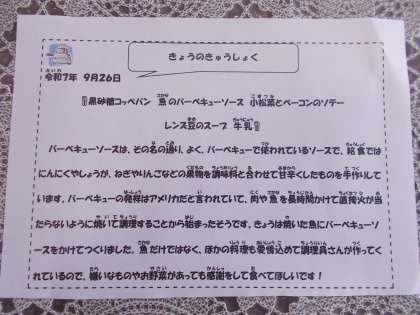 きょうのきゅうしょく
令和7年 9月26日
『黒砂糖コッペパン 魚のバーベキューソース 小松菜とベーコンのソテー
レンズ豆のスープ 牛乳』
バーベキューソースは、その名の通り、よく、バーベキューで使われているソースで、給食では
にんにくやしょうが、ねぎやりんごなどの果物を調味料と合わせて甘辛くしたものを手作りして
います。バーベキューの発祥はアメリカだと言われていて、肉や魚を長時間かけて直接火が当
たらないように焼いて調理することから始まったそうです。きょうは焼いた魚にバーベキューソ
ースをかけてつくりました。魚だけではなく、ほかの料理も愛情込めて調理員さんが作ってく
れているので、嫌いなものやお野菜があっても感謝をして食べてほしいです!